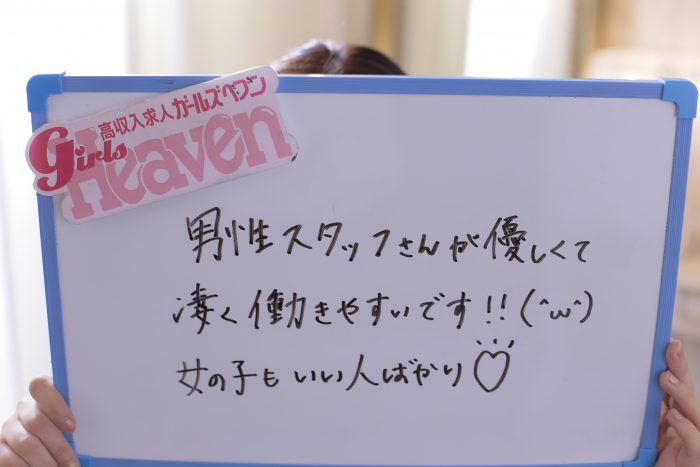 高収入求人ガールズヘブン
Girls
Heaven
男性スタッフさんが優しくて
凄く働きやすいです!!(^ω^)
女の子もいい人ばかり♡